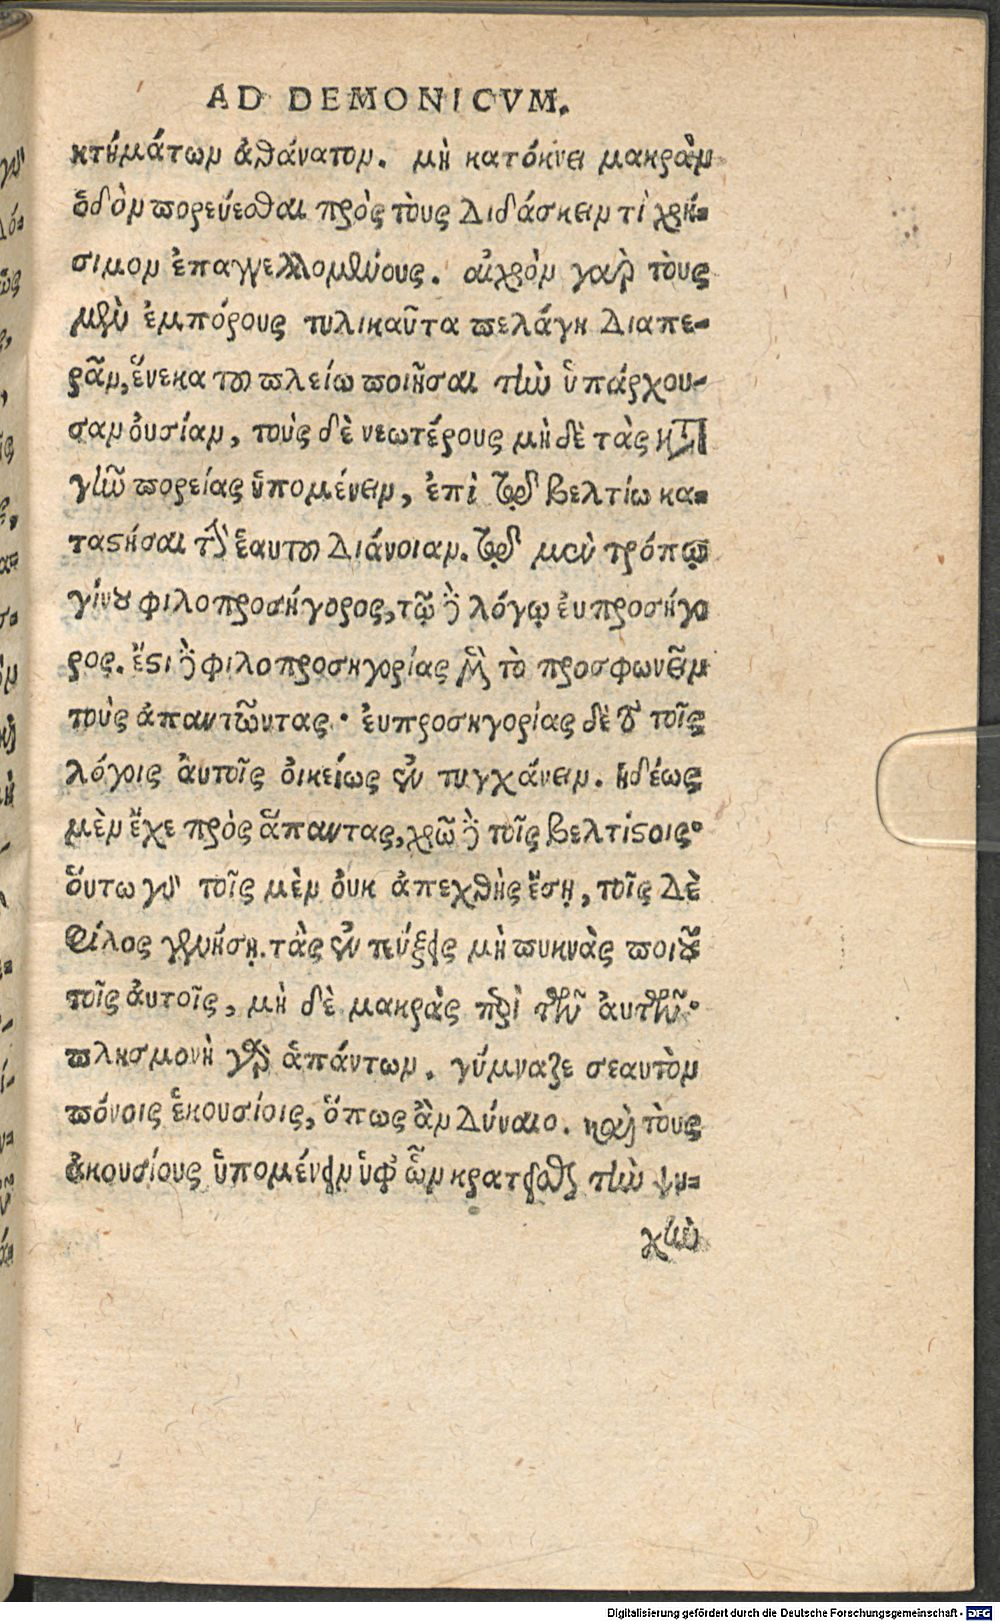 AD DEMONICVM.
κτημάτων ἀθάνατον. μὴ κατόκνει μακρὰν
ὁδὸν πορεύεσθαι πρὸς τοὺς διδάσκειν τὶ χρή=
σιμον ἐπαγγελλομένους. αἰχρὸν γαρ τοὺς
μὲν ἐμπόρους τυλικαῦτα πελάγη διαπε=
ρᾶν, ἕνεκα του πλείω ποιῆσαι τὴν ὑπάρχου=
σαν οὐσίαν, τοὺς δὲ νεωτέρους μὴ δὲ τὰς κατὰ
γῆν πορείας ὑπομένειν, ἐπὶ τῷ βελτίω κα=
ταστήσαι τὴν ἑαυτου διάνοιαν. τῷ μεν τρόπῳ
γίνου φιλοπροσήγορος, τῷ δὲ λόγῳ ἐυπροσήγο
ρος. ἔστι δὲ φιλοπροσηγορίας μὲν τὸ προσφωνεῖν
τοὺς ἀπαντῶντας· ἐυπροσηγορίας δὲ τὸ τοῖς
λόγοις ἀυτοῖς ὀικείως ἐν τυγχάνειν. ἡδέως
μὲν ἔχε πρὸς ἅπαντας, χρῶ δὲ τοῖς βελτίστοις·
ὅυτω γὰρ τοῖς μὲν ὀυκ ἀπεχθὴς ἔσῃ, τοῖς δὲ
φίλος γενήσῃ. τὰς ἐν τεύξεις μὴ πυκνὰς ποιοῦ
τοῖς ἀυτοῖς, μὴ δὲ μακρὰς περὶ τῶν ἀυτῶν·
πλησμονὴ γὰρ ἁπάντων. γύμναζε σεαυτὸν
πόνοις ἑκουσίοις, ὅπως ἂν δύναιο. καὶ τοὺς
ἀκουσίους ὑπομένειν ὑφ' ὧν κρατεῖσθαι τὴν ψυ=
χὴν